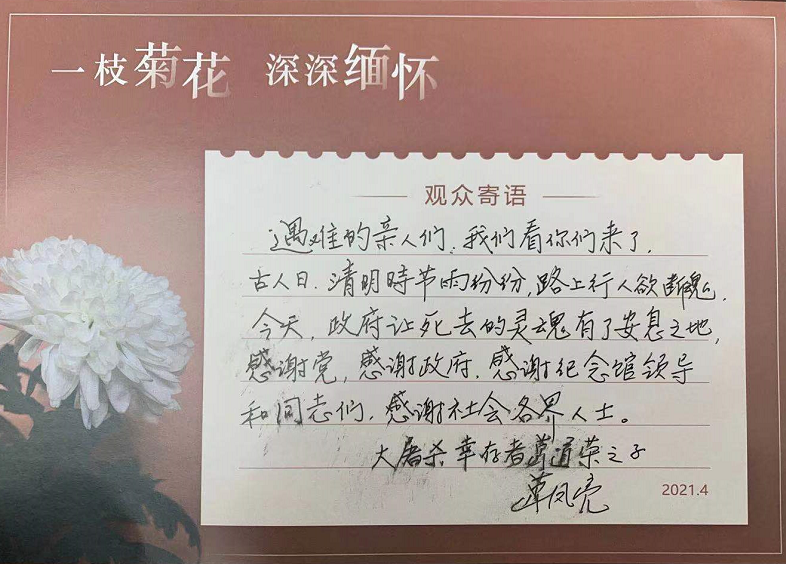 一枝菊花 深深缅怀
观众寄语
遇难的亲人们,我们看你们来了.
古人曰.清明時节雨份份,路上行人欲断魂.
今天,政府让死去的灵魂有了安息之地,
感谢党,感谢政府.感谢纪念馆领导
和同志们.感谢社会各界人士。
大屠杀幸存者葛道荣之子
葛凤亮
2021.4